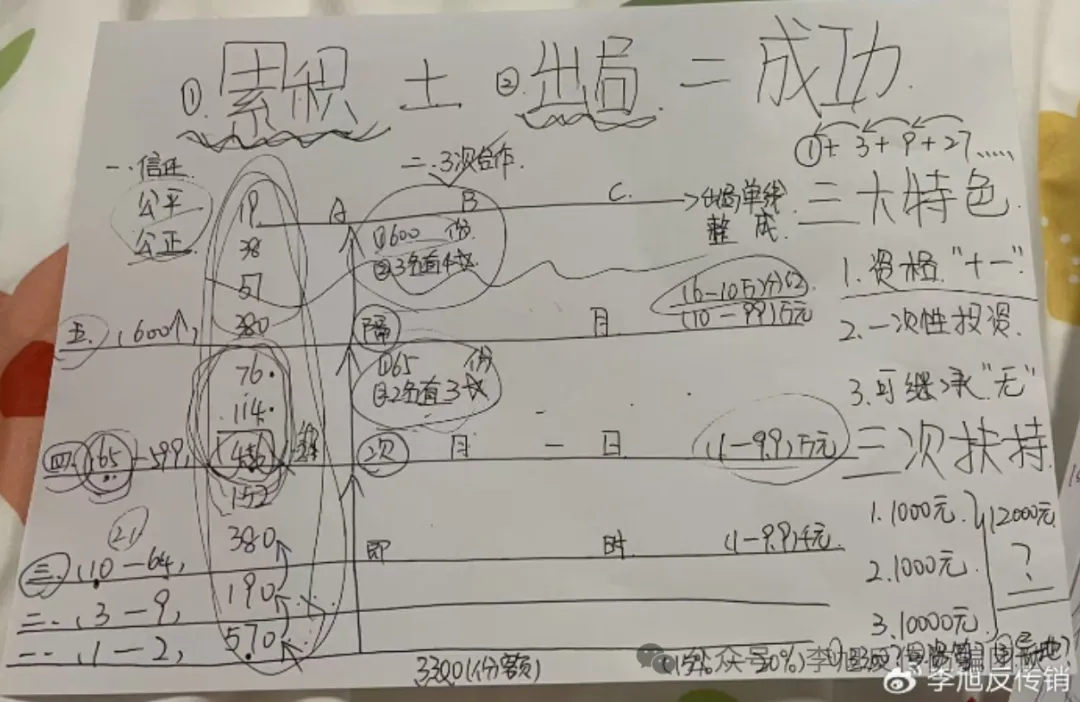 ①累积 土 ②出局 = 成功
①+3+9+27……
一.信任
二.3次合作
公平
公正
19
38
57
380
A
B
C
出局单线
整 成
①600 份
②3名直
三大特色
1.资格"十一"
2.一次性投资
3.可继承"无"
五.(600个)
隔
月
(6-10万)
(10-99)万元
76.
114.
①65 份
②2名直3
四.(65-599)
次 月 一 日
(1-99)万元
152
380
190
570
21
三.(10-64)
即 时
(1-9.9)千元
二.(3-9)
一.(1-2)
3300(份额)
三次扶持
1.1000元
2.1000元
3.10000元
12000元
?
(15% 20%)
李旭反传销